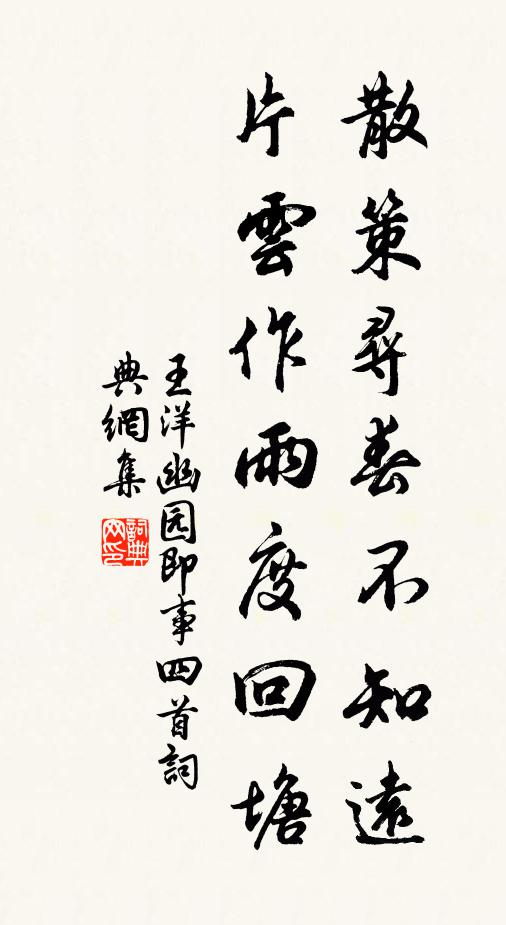 散策尋春不知遠
片雲作雨度回塘
王洋幽园即事四首詞
典網集
詞典
网印